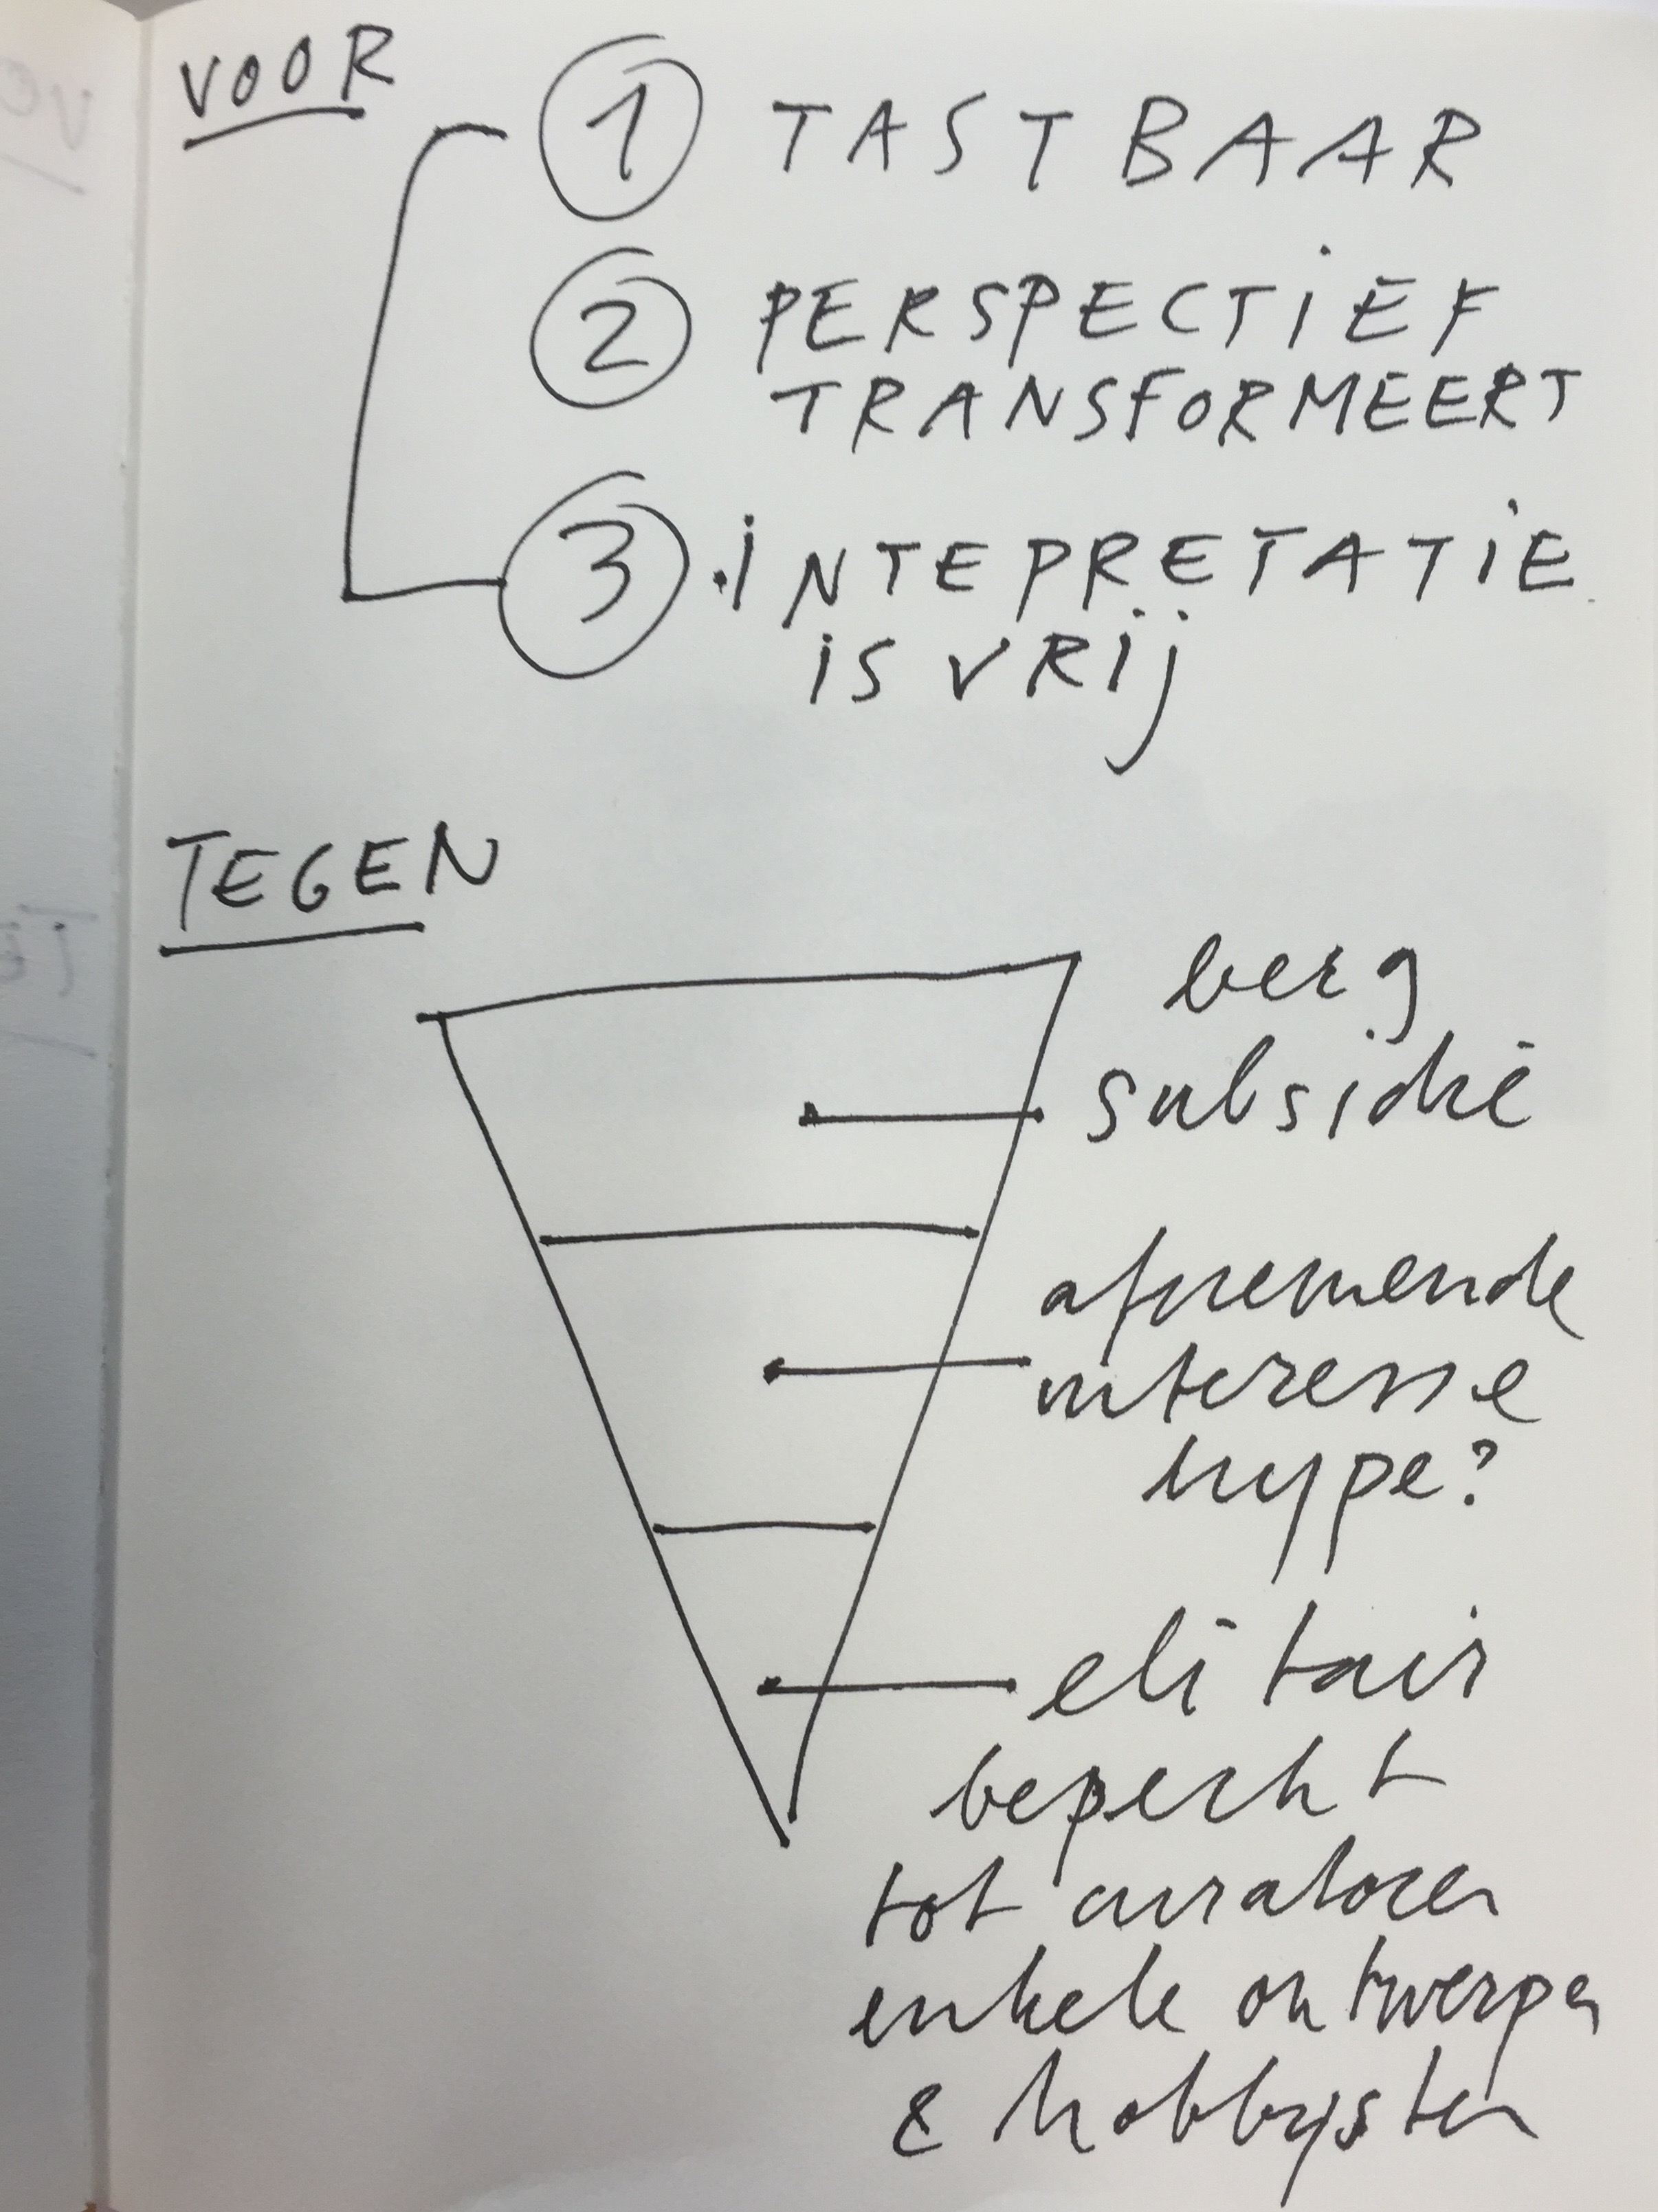 VOOR
1 TASTBAAR
2 PERSPECTiEF
TRANSFORMEERT
3 iNTEPRETATiE
iS VRij
TEGEN
berg
subsidie
afnemende
interesse
hype?
elitair
beperkt
tot curatoren
enkele ontwerper
& hobbyisten